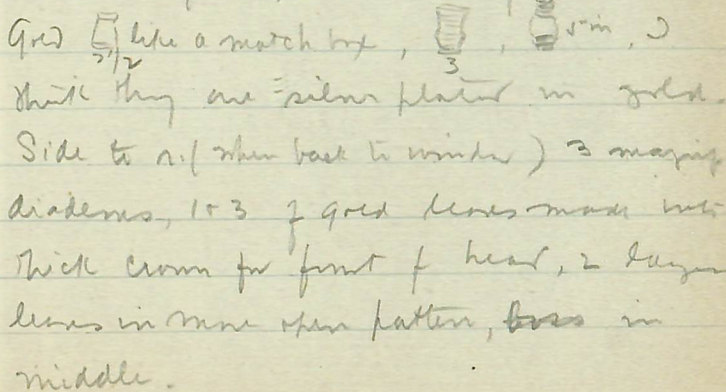 Gold 2 1/2 like a match box, 3, 5 in, I
think they are silver plated in gold.
Side to r. (when back to window) 3 magnif
diadems, 1 + 3 of gold leaves made into
thick crown for front of head, 2 larger
leaves in more open pattern, in
middle.